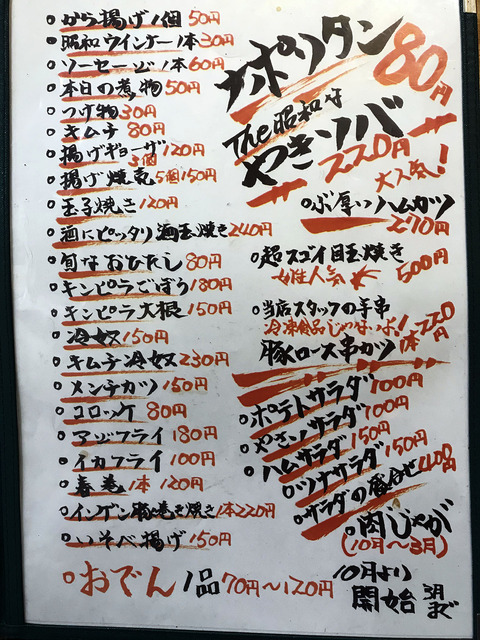 から揚げ1個 50円
昭和ウインナー1本 30円
ソーセージ1本 60円
本日の煮物 50円
つけ物 30円
キムチ 80円
揚げギョーザ 3個 120円
揚げ焼売 5個 150円
玉子焼き 120円
酒にピッタリ 酒玉焼き 240円
旬なおひたし 80円
キンピラごぼう 180円
キンピラ大根 150円
冷奴 150円
キムチ冷奴 230円
メンチカツ 150円
コロッケ 80円
アジフライ 180円
イカフライ 100円
春巻 1本 120円
インゲン豚巻き焼き 1本 220円
いそべ揚げ 150円
おでん 1品 70円〜120円
10月より
開始 3月まで
ナポリタン 80円
The昭和な
やきソバ
220円
大人気!
ぶ厚いハムカツ
270円
超スゴイ目玉焼き
女性人気 500円
当店スタッフの手串
冷凍食品じゃないよ!
豚ロース串カツ 1本 220円
ポテトサラダ 100円
やさいサラダ 100円
ハムサラダ 150円
ツナサラダ 150円
サラダの盛合せ 400円
肉じゃが
(10月〜3月)